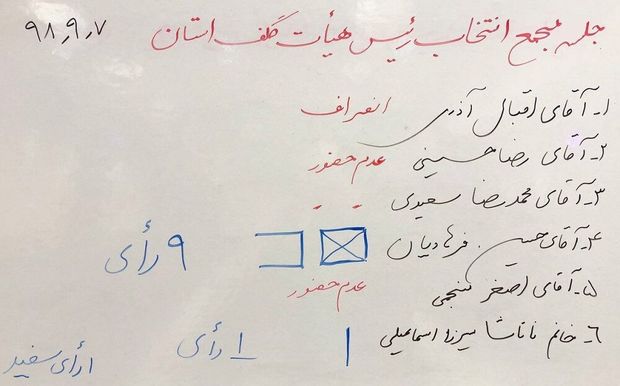 ۹۸٫۹٫۷
جلسه مجمع انتخاب رئیس هیأت گلف استان
۱- آقای اقبال آذری انصراف
۲- آقای رضا حسینی عدم حضور
۳- آقای محمدرضا سعیدی - -
۴- آقای حسین فرهادیان ۹ رأی
۵- آقای اصغر منجمی عدم حضور
۶- خانم ناتاشا میرزا اسماعیلی ۱ رأی
۱ رأی سفید